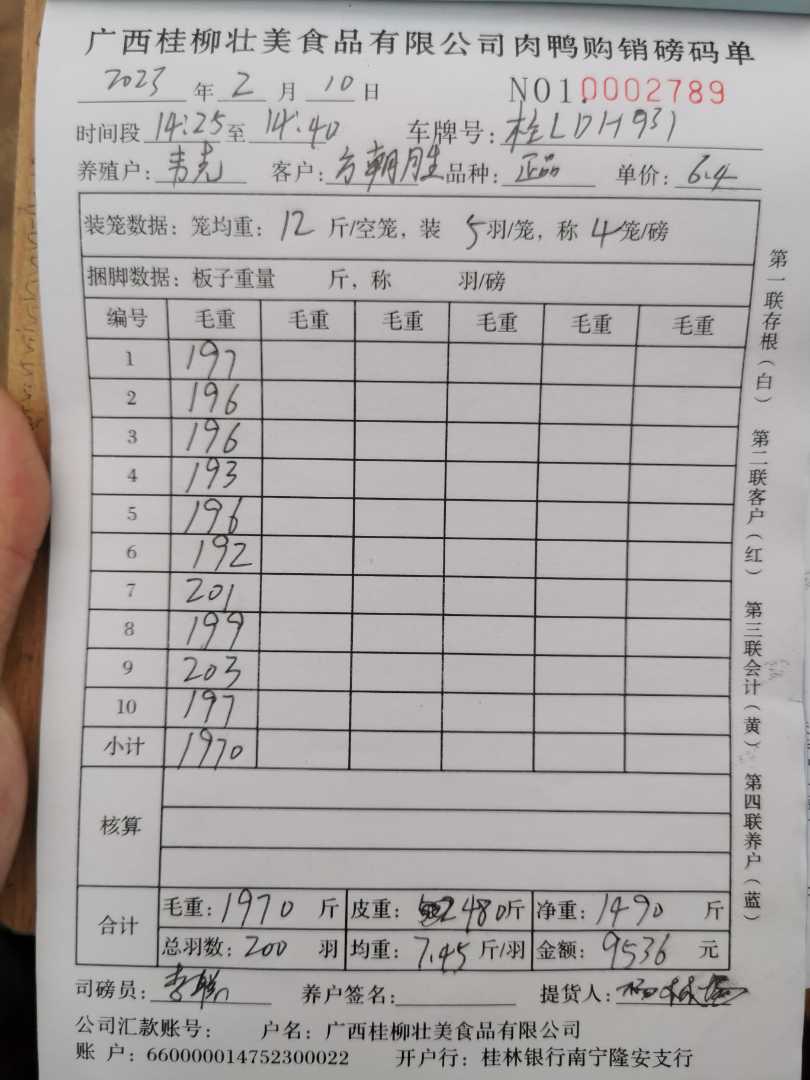 广西桂柳壮美食品有限公司肉鸭购销磅码单
2023 年 2 月 10 日 NO1.0002789
时间段 14:25 至 14:40 车牌号: 桂LDH931
养殖户: 韦克 客户: 方朝胜 品种: 正品 单价: 6.4
装笼数据: 笼均重: 12 斤/空笼, 装 5 羽/笼, 称 4 笼/磅
捆脚数据: 板子重量 斤, 称 羽/磅
编号 毛重 毛重 毛重 毛重 毛重 毛重
1 197
2 196
3 196
4 193
5 196
6 192
7 201
8 199
9 203
10 197
小计 1970
核算
合计 毛重: 1970 斤 皮重: 480斤 净重: 1490 斤
总羽数: 200 羽 均重: 7.45 斤/羽 金额: 9536 元
司磅员: 养户签名: 提货人:
公司汇款账号: 户名: 广西桂柳壮美食品有限公司
账 户: 660000014752300022 开户行: 桂林银行南宁隆安支行
第一联存根(白) 第二联客户(红) 第三联会计(黄) 第四联养户(蓝)